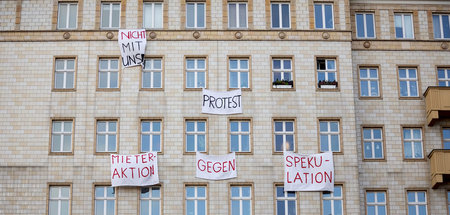 NICHT
MIT
UNS!
PROTEST
MIETER-
AKTION
GEGEN
SPEKU-
LATION